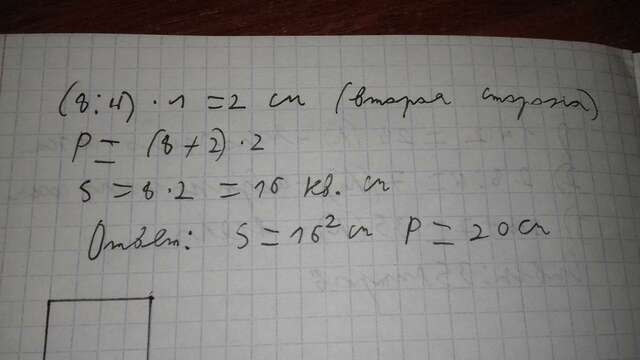 (8:4)·1=2 см (вторая сторона)
P=(8+2)·2
S=8·2=16 кв. см
Ответ: S=16² см P=20 см